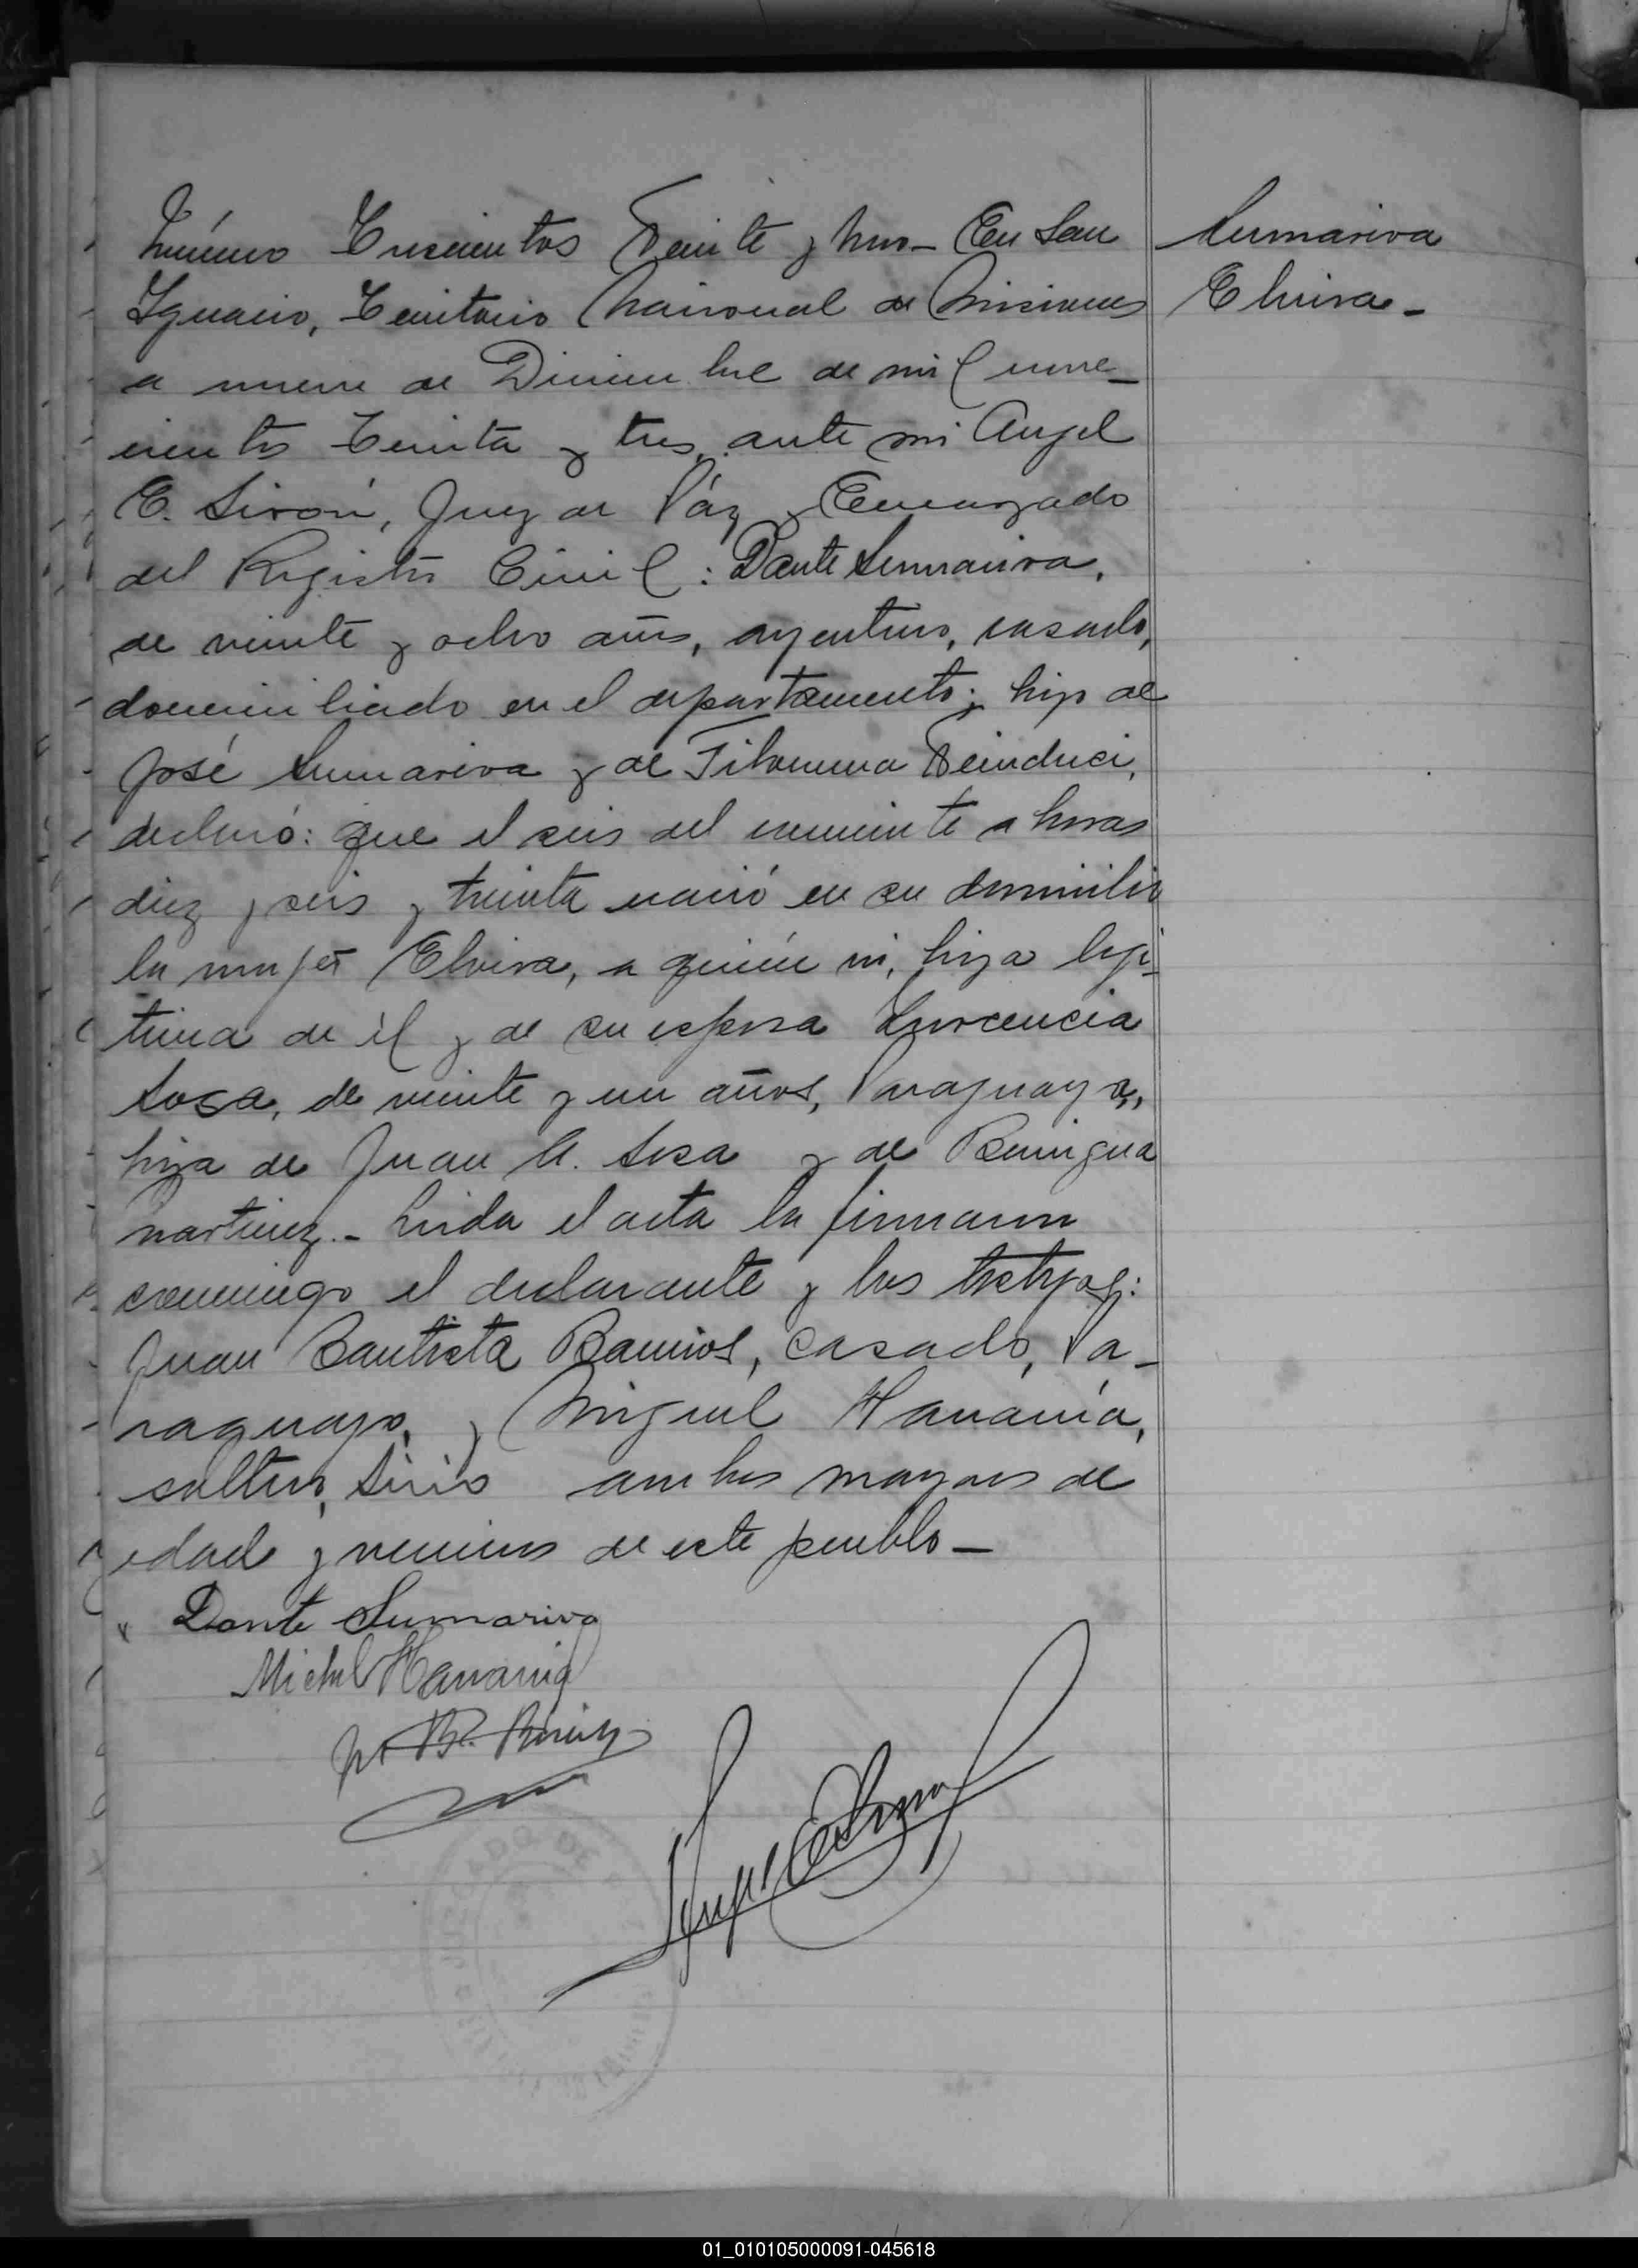 Número Trescientos Veinte y Uno— En San
Ignacio, Territorio Nacional de Misiones
a nueve de Diciembre de mil nove-
cientos treinta y tres, ante mi Angel
E. Siròn, Juez de Páz y Encargado
del Registro Civil: Dante Sumariva,
de veinte y ocho años, argentino, casado,
domiciliado en el departamento; hijo de
José Sumariva y de Filomena
declaró: que el seis del corriente a horas
diez y seis y treinta nació en su domicilio
la mujer Elvira, a quién ví, hija legí-
tima de él y de su esposa Inocencia
Sosa, de veinte y un años, Paraguaya,
hija de Juan A. Sosa y de Benigna
Martinez.- Leida el acta la firmaron
conmigo el declarante y los testigos:
Juan Bautista Barrios, casado, Pa-
raguayo, y Miguel Hananía,
soltero, Sirio ambos mayores de
edad y vecinos de este pueblo—
Dante Sumariva
Michel Hanania
Sumariva
Elvira-
JUZGADO DE
01_010105000091-045618